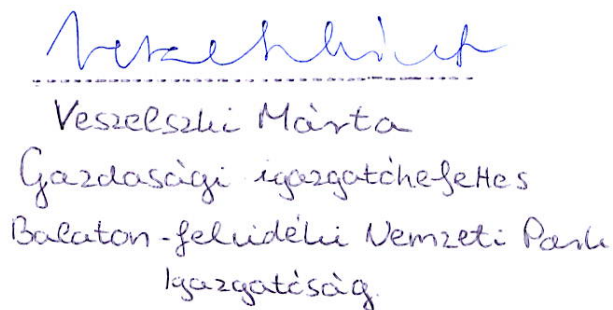 Veszelszki Márta
Gazdasági igazgatóhelyettes
Balaton-felvidéki Nemzeti Park
Igazgatóság